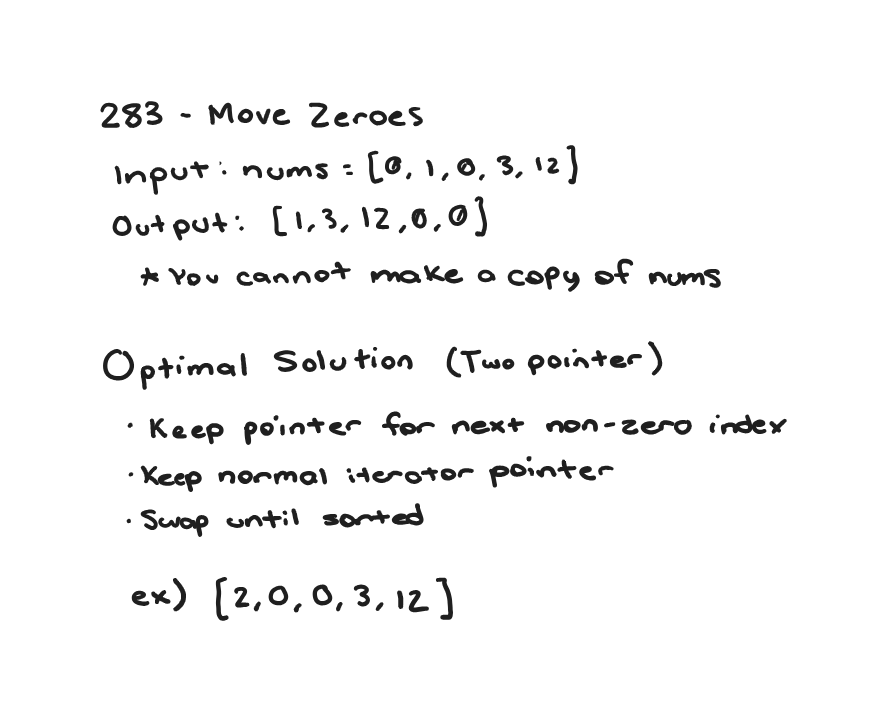 283 - Move Zeroes
Input: nums = [0, 1, 0, 3, 12]
Output: [1, 3, 12, 0, 0]
* You cannot make a copy of nums
Optimal Solution (Two pointer)
· Keep pointer for next non-zero index
· Keep normal iterator pointer
· Swap until sorted
ex) [2, 0, 0, 3, 12]